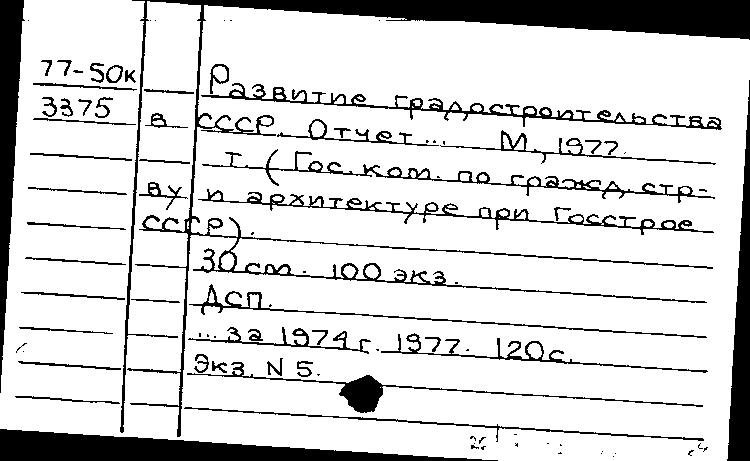 77-50к Развитие градостроительства
3375 в СССР. Отчет... М., 1977.
т. (Гос. ком. по гражд. стр-
ву и архитектуре при Госстрое
СССР).
30 cm. 100 экз.
Дсп.
...за 1974 г. 1977. 120 с.
Экз. N 5.